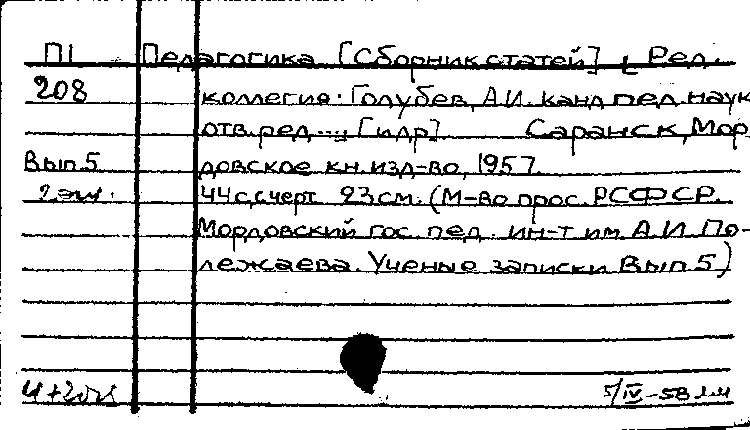 П1 Педагогика [Сборник статей] [Ред.
208 коллегия: Голубев, А.И. канд. пед. наук
отв. ред. ..., [и др.] Саранск, Мор
Вып. 5 довское кн. изд-во, 1957.
2 экз. 44 с., с черт. 23 см. (М-во прос. РСФСР.
Мордовский гос. пед. ин-т им. А.И. По-
лежаева. Ученые записки Вып. 5)
5/IV-58